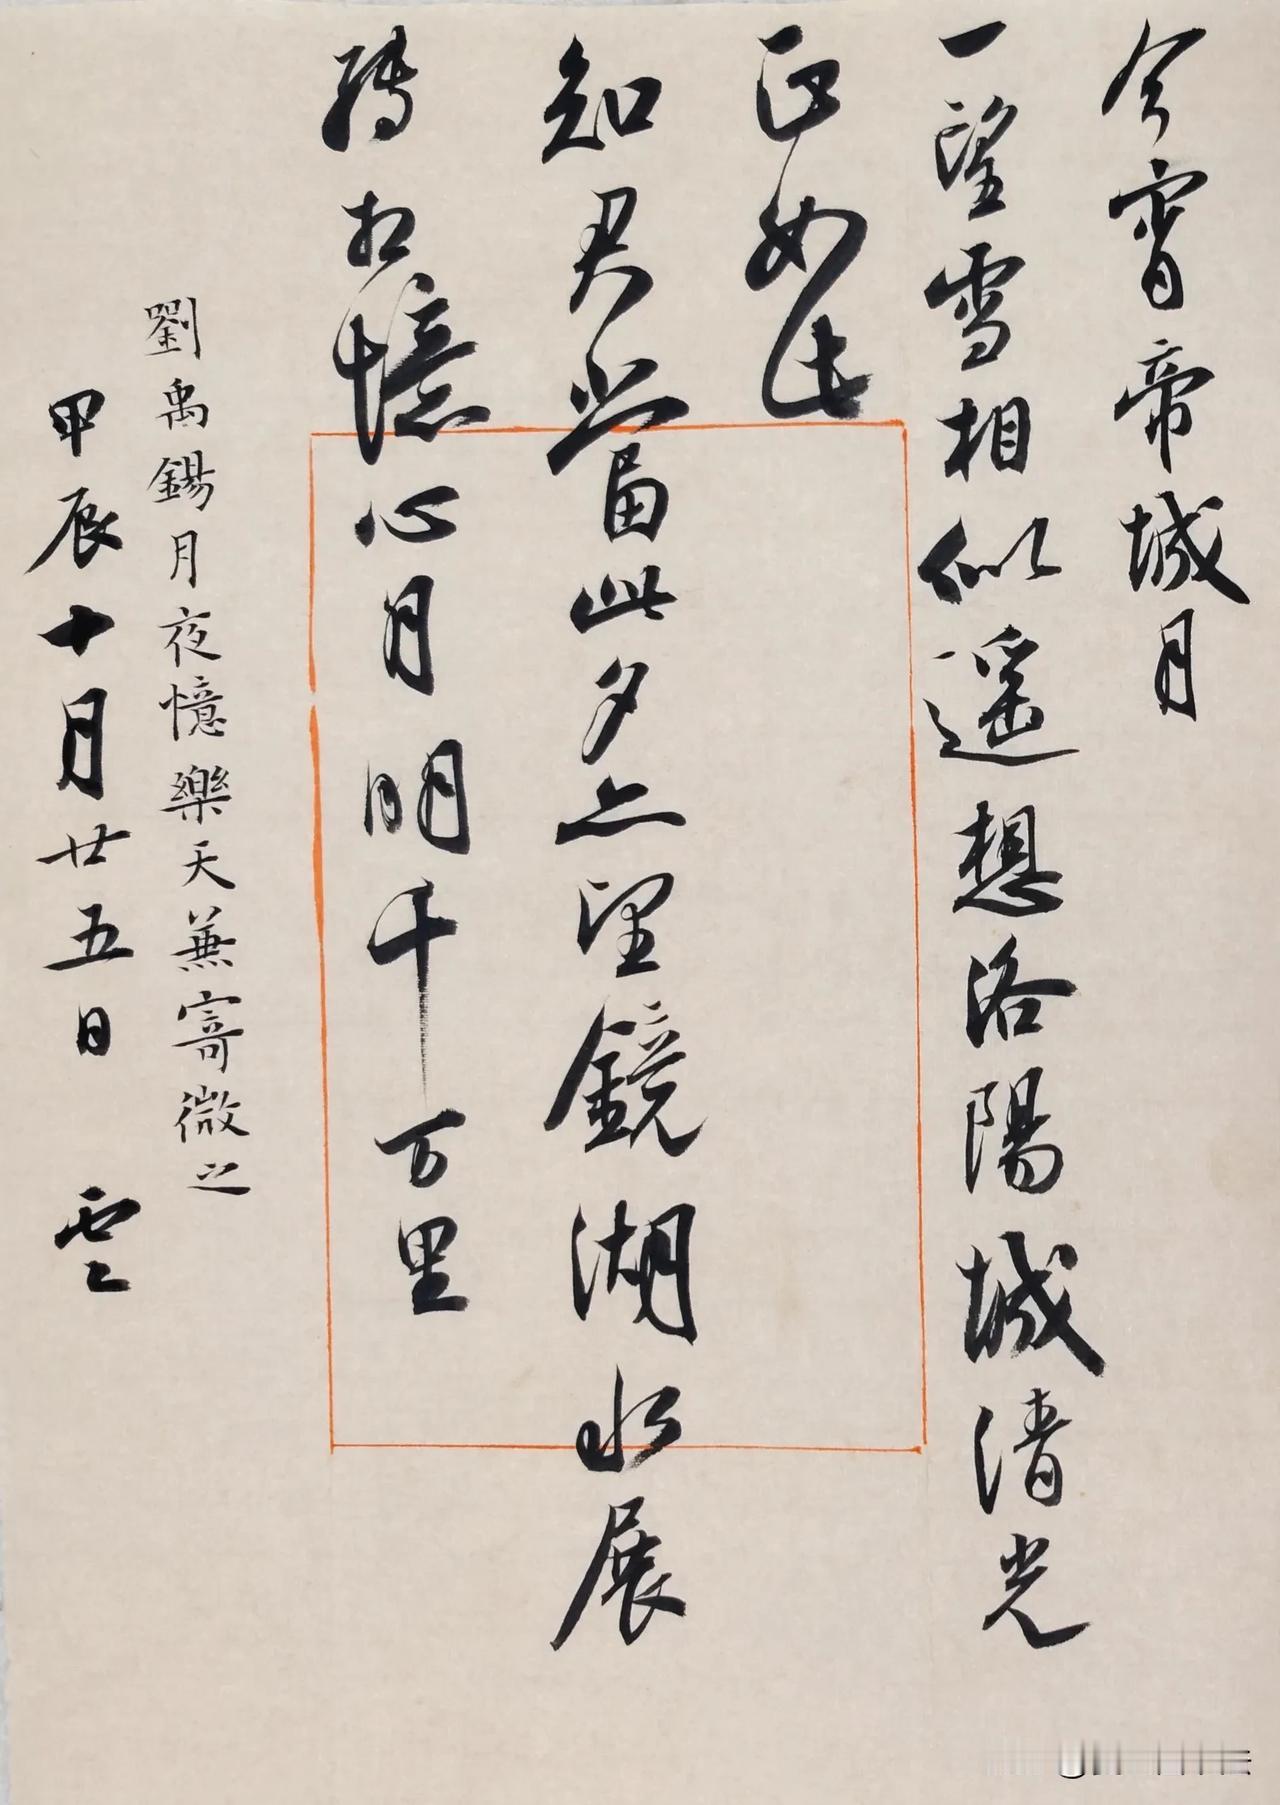 今宵帝城月
一望雪相似遥想洛陽城清光
正如此
知君當此夕亦望鏡湖水展
轉相憶心月明千万里
劉禹錫月夜憶樂天兼寄微之
甲辰十月廿五日